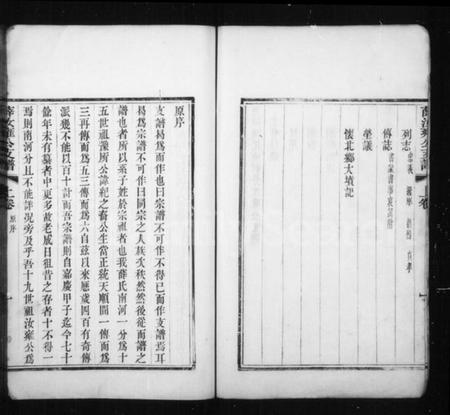 薛汝雍公支譜 上卷
列志
傳誌
塋議
懷北鄉大墳記
原序
支譜曷爲而作也曰宗譜不可作不得已而作支譜焉耳
曷爲宗譜不可作曰同宗之人族失秩然然後從而譜之
譜也者所以系子姓於宗祖者也我薛氏南河一分爲十
五世祖豫所公諱紀之畜公生當正統天順間一傳而爲
三再傳而爲五三傳而爲六自茲以來歷歲四百有奇傳
派幾不能以百十計而吾宗譜則自嘉慶甲子迄今七十
餘年未有纂者中更多故老成日徂昔之存者十不得一
焉則南河分且不能詳況旁及乎吾十九世祖汝雍公爲
薛汝雍公支譜 上卷 原序